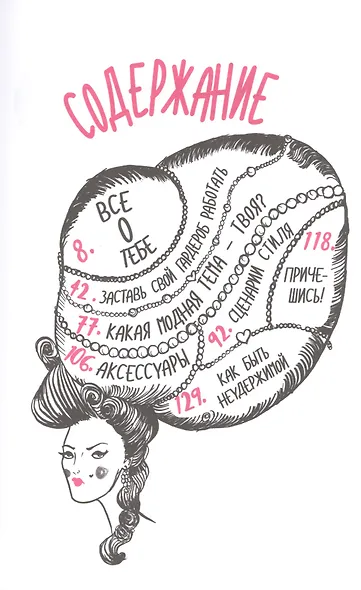 СОДЕРЖАНИЕ
8.
ВСЕ
О
ТЕБЕ
42. ЗАСТАВЬ СВОЙ ГАРДЕРОБ РАБОТАТЬ
77. КАКАЯ МОДНАЯ ТЕПА – ТВОЯ?
92. СЦЕНАРИИ СТИЛЯ
106. АКСЕССУАРЫ
118.
ПРИЧЕ-
ШИСЬ!
129. КАК БЫТЬ
НЕУДЕРЖИМОЙ